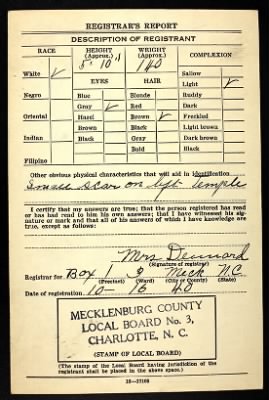 REGISTRAR'S REPORT
DESCRIPTION OF REGISTRANT
RACE HEIGHT (Approx.) WEIGHT (Approx.) COMPLEXION
5' 10" 140
White ✓ EYES HAIR Sallow
Light ✓
Negro Blue Blonde Ruddy
Gray ✓ Red Dark
Oriental Hazel Brown ✓ Freckled
Brown Black Light brown
Indian Black Gray Dark brown
Bald Black
Filipino
Other obvious physical characteristics that will aid in identification
Small scar on left temple
I certify that my answers are true; that the person registered has read
or has had read to him his own answers; that I have witnessed his signa-
ture or mark and that all of his answers of which I have knowledge are
true, except as follows:
Mrs
(Signature of registrar)
Registrar for Box 1 3 Meck N.C.
(Precinct) (Ward) (City or County) (State)
Date of registration 10 16 40
MECKLENBURG COUNTY
LOCAL BOARD No. 3,
CHARLOTTE, N. C.
(STAMP OF LOCAL BOARD)
(The stamp of the Local Board having jurisdiction of the
registrant shall be placed in the above space.)